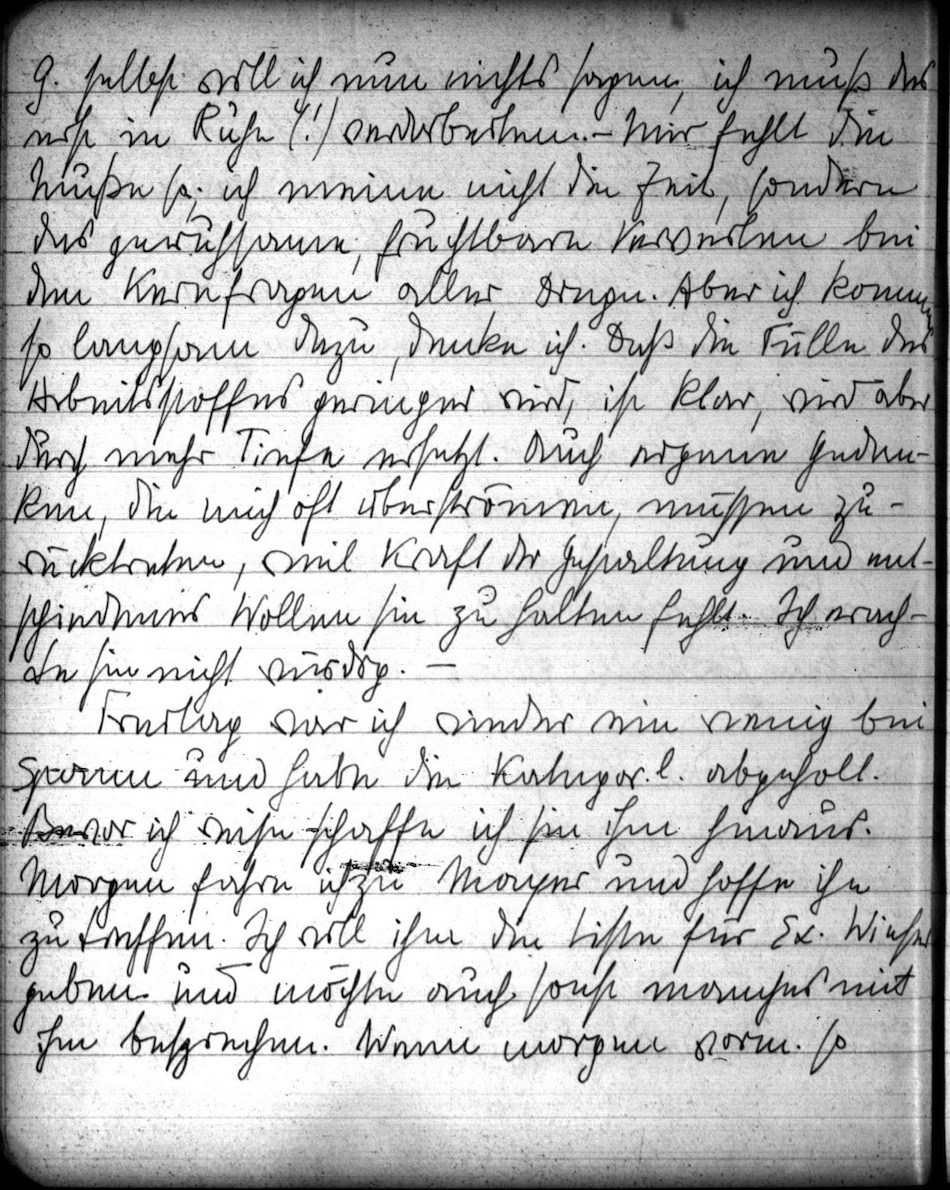 G. selbst will ich nun nichts sagen, ich muß das
erst in Ruhe (!) verarbeiten. – Mir fehlt die
Muße so; ich meine nicht die Zeit, sondern
das geruhsame, fruchtbare Verweilen bei
den Kernfragen aller Dinge. Aber ich komme
so langsam dazu, denke ich. Daß die Fülle des
Arbeitsstoffes geringer wird, ist klar, wird aber
durch mehr Tiefe ersetzt. Auch eigene Gedan-
ken, die mich oft überströmen, müssen zu-
rücktreten, weil Kraft der Gestaltung und ent-
schiedenes Wollen sie zu halten fehlt. Ich erach-
te sie nicht würdig. –
Freitag war ich wieder ein wenig bei
Spann und habe die Kategor.l. abgeholt.
Bevor ich reise schaffe ich sie ihm hinaus.
Morgen fahre ich zu Mayer und hoffe ihn
zu treffen. Ich will ihm die Liste für Ex.
geben und möchte auch sonst manches mit
ihm besprechen. Wenn morgen vorm. so